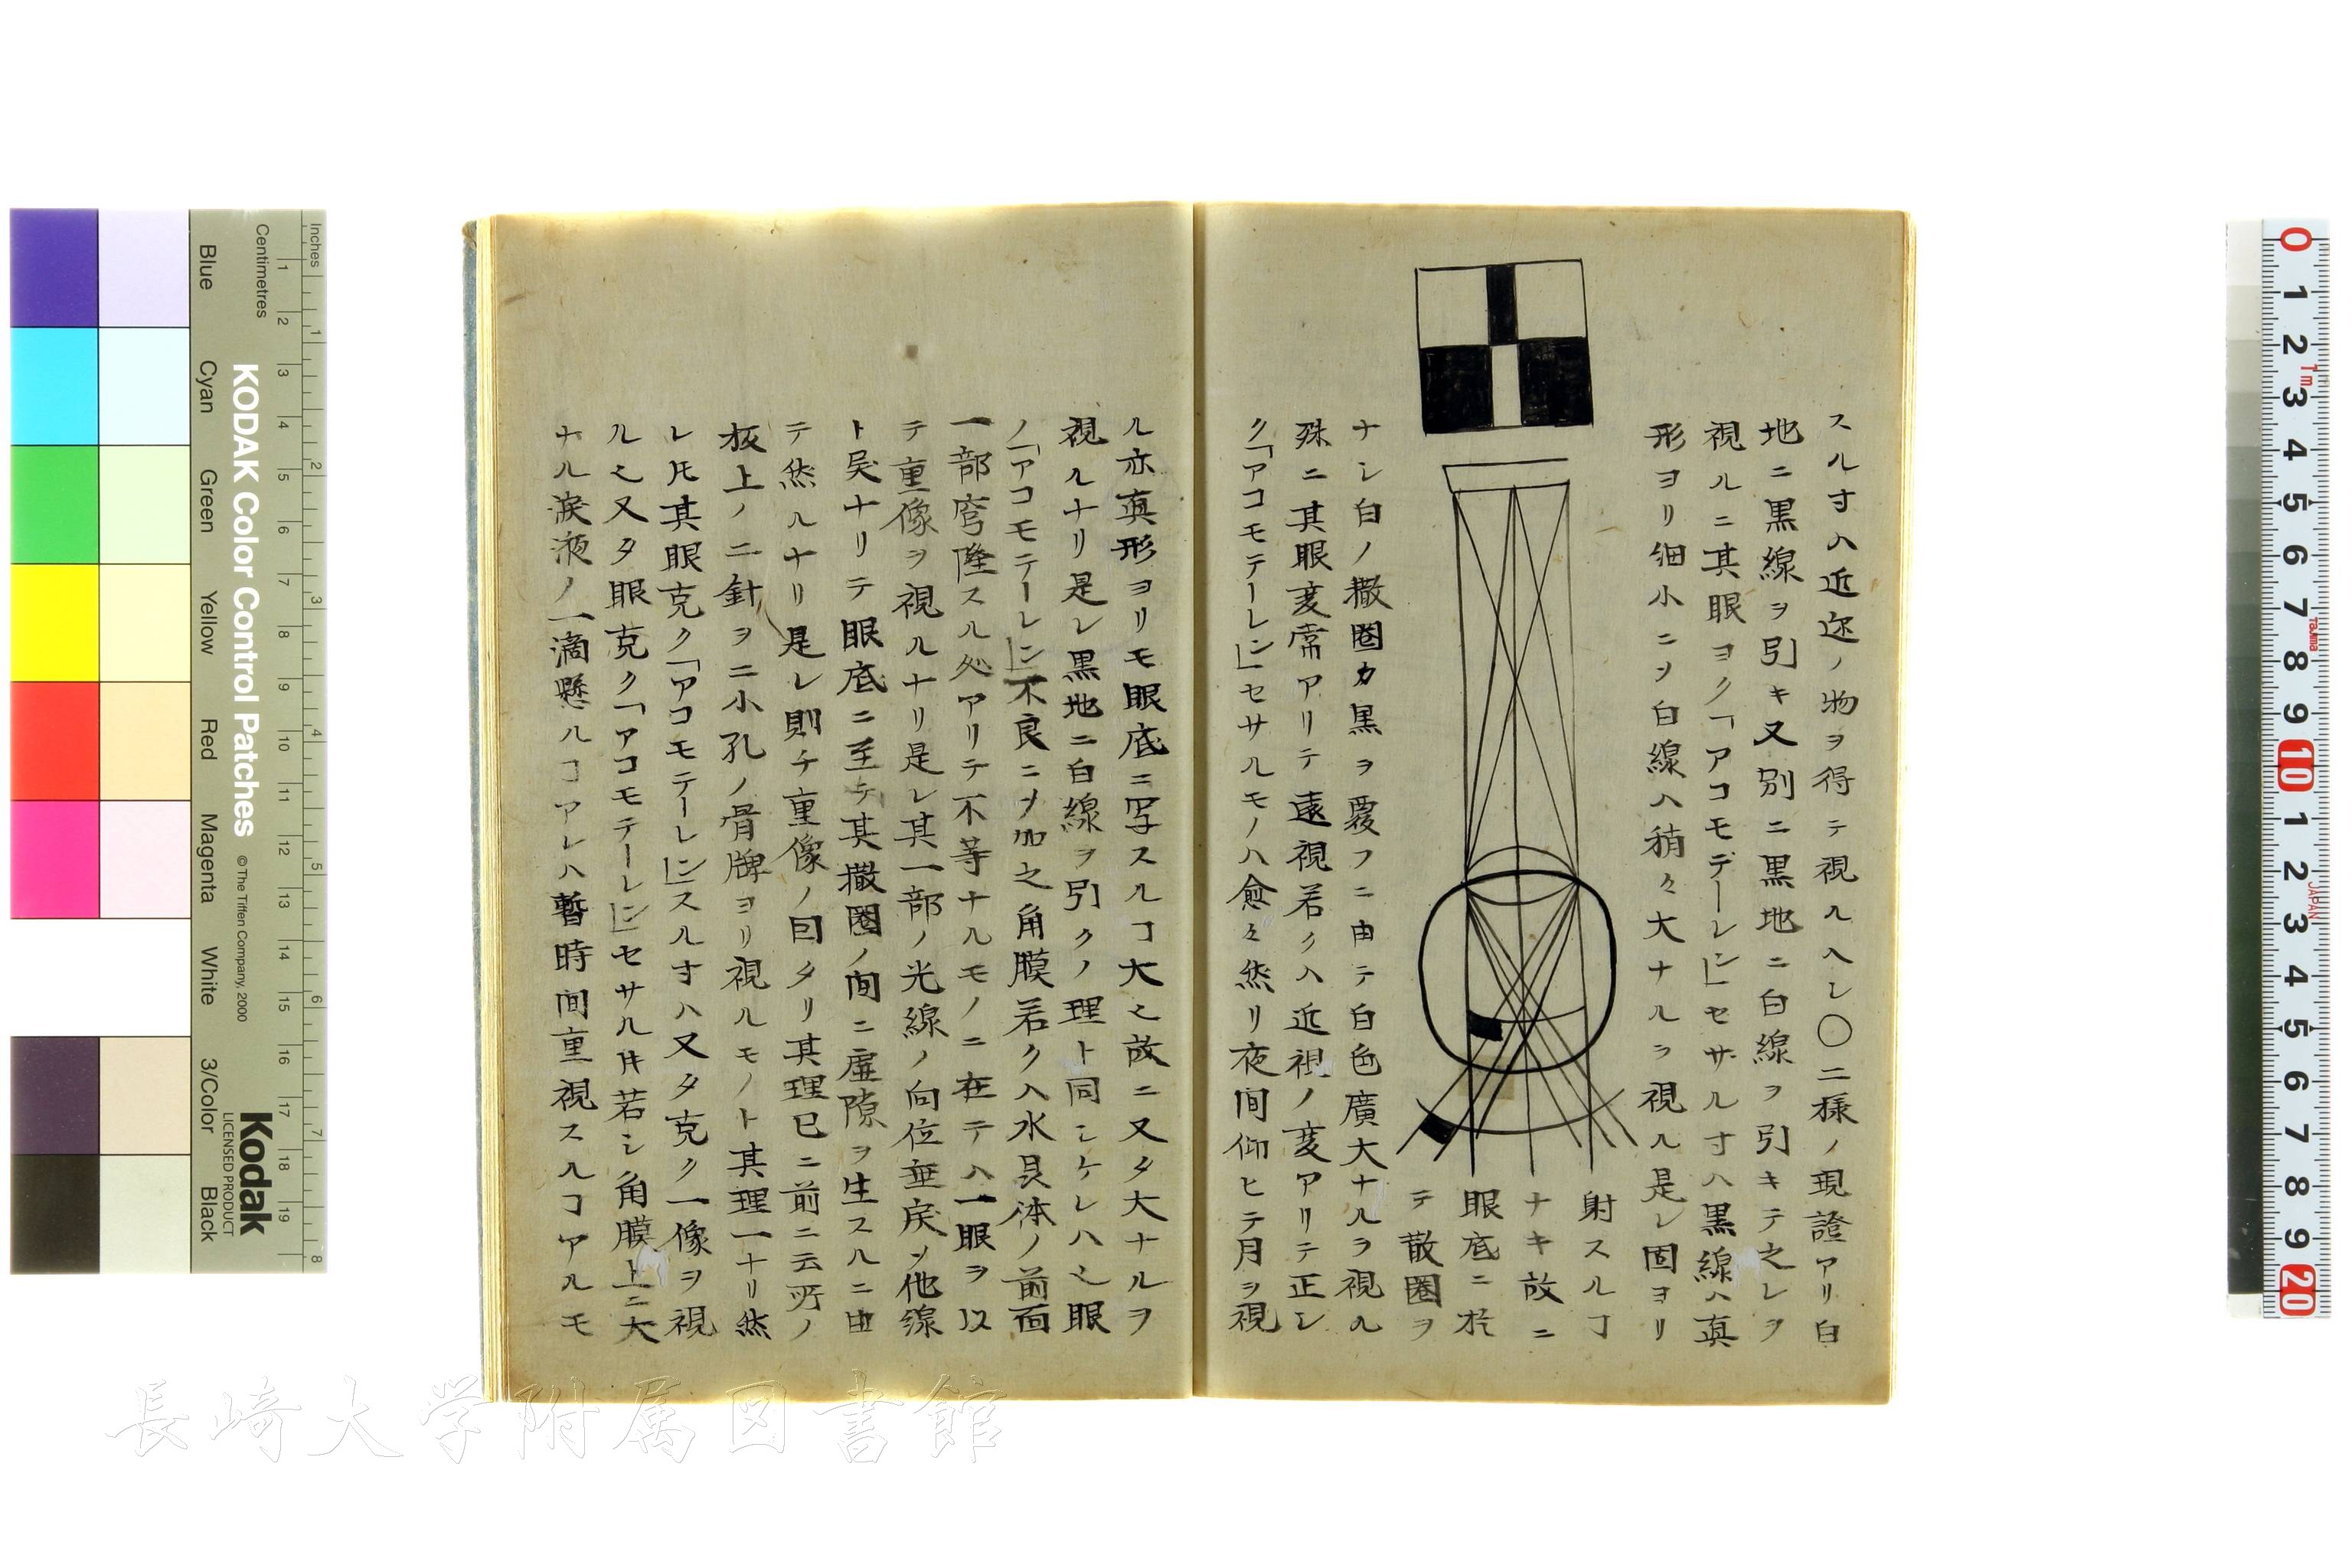 スル寸ハ近迩ノ物ヲ得テ視ルヘシ〇二様ノ現證アリ白
地ニ黒線ヲ引キ又別ニ黒地ニ白線ヲ引キテ之レヲ
視ルニ其眼ヨク「アコモデーレン」セサル寸ハ黒線ハ真
形ヨリ細小ニヲ白線ハ稍々大ナルヲ視ル是レ固ヨリ
射スルヿ
ナキ故ニ
眼底ニ於
テ散圏ヲ
ナシ白ノ撒圏カ黒ヲ覆フニ由テ白色廣大ナルヲ視ル
殊ニ其眼変常アリテ遠視若クハ近視ノ変アリテ正シ
ク「アコモテーレン」セサルモノハ愈々然リ夜間仰ヒテ月ヲ視
ル亦真形ヨリモ眼底ニ写スルヿ大也故ニ又タ大ナルヲ
視ルナリ是レ黒地ニ白線ヲ引クノ理ト同シケレハ也眼
ノ「アコモテーレン」不良ニヲ加之角膜若クハ水晶体ノ前面
一部穹隆スル処アリテ不等ナルモノニ在テハ一眼ヲ以
テ重像ヲ視ルナリ是レ其一部ノ光線ノ向位乖戻シ他線
ト戻ナリテ眼底ニ至テ其撒圏ノ間ニ虚隙ヲ生スルニ由
テ然ルナリ是レ則チ重像ノ因タリ其理已ニ前ニ云所ノ
板上ノ二針ヲ二小孔ノ骨牌ヨリ視ルモノト其理一ナリ然
レ𪜈其眼克ク「アコモテーレン」スル寸ハ又タ克ク一像ヲ視
ル也又タ眼克ク「アコモテーレン」セサル𪜈若シ角膜上ニ大
ナル涙液ノ一滴懸ルヿアレハ暫時間重視スルヿアルモ
Inches
Centimetres
KODAK Color Control Patches
© The Tiffen Company, 2000
Kodak
LICENSED PRODUCT
Blue
Cyan
Green
Yellow
Red
Magenta
White
3/Color
Black
1 2 3 4 5 6 7 8 9 10 11 12 13 14 15 16 17 18 19
1 2 3 4 5 6 7 8
0 1 2 3 4 5 6 7 8 9 10 1 2 3 4 5 6 7 8 9 20
1m
Tajima
JAPAN
長崎大学附属図書館